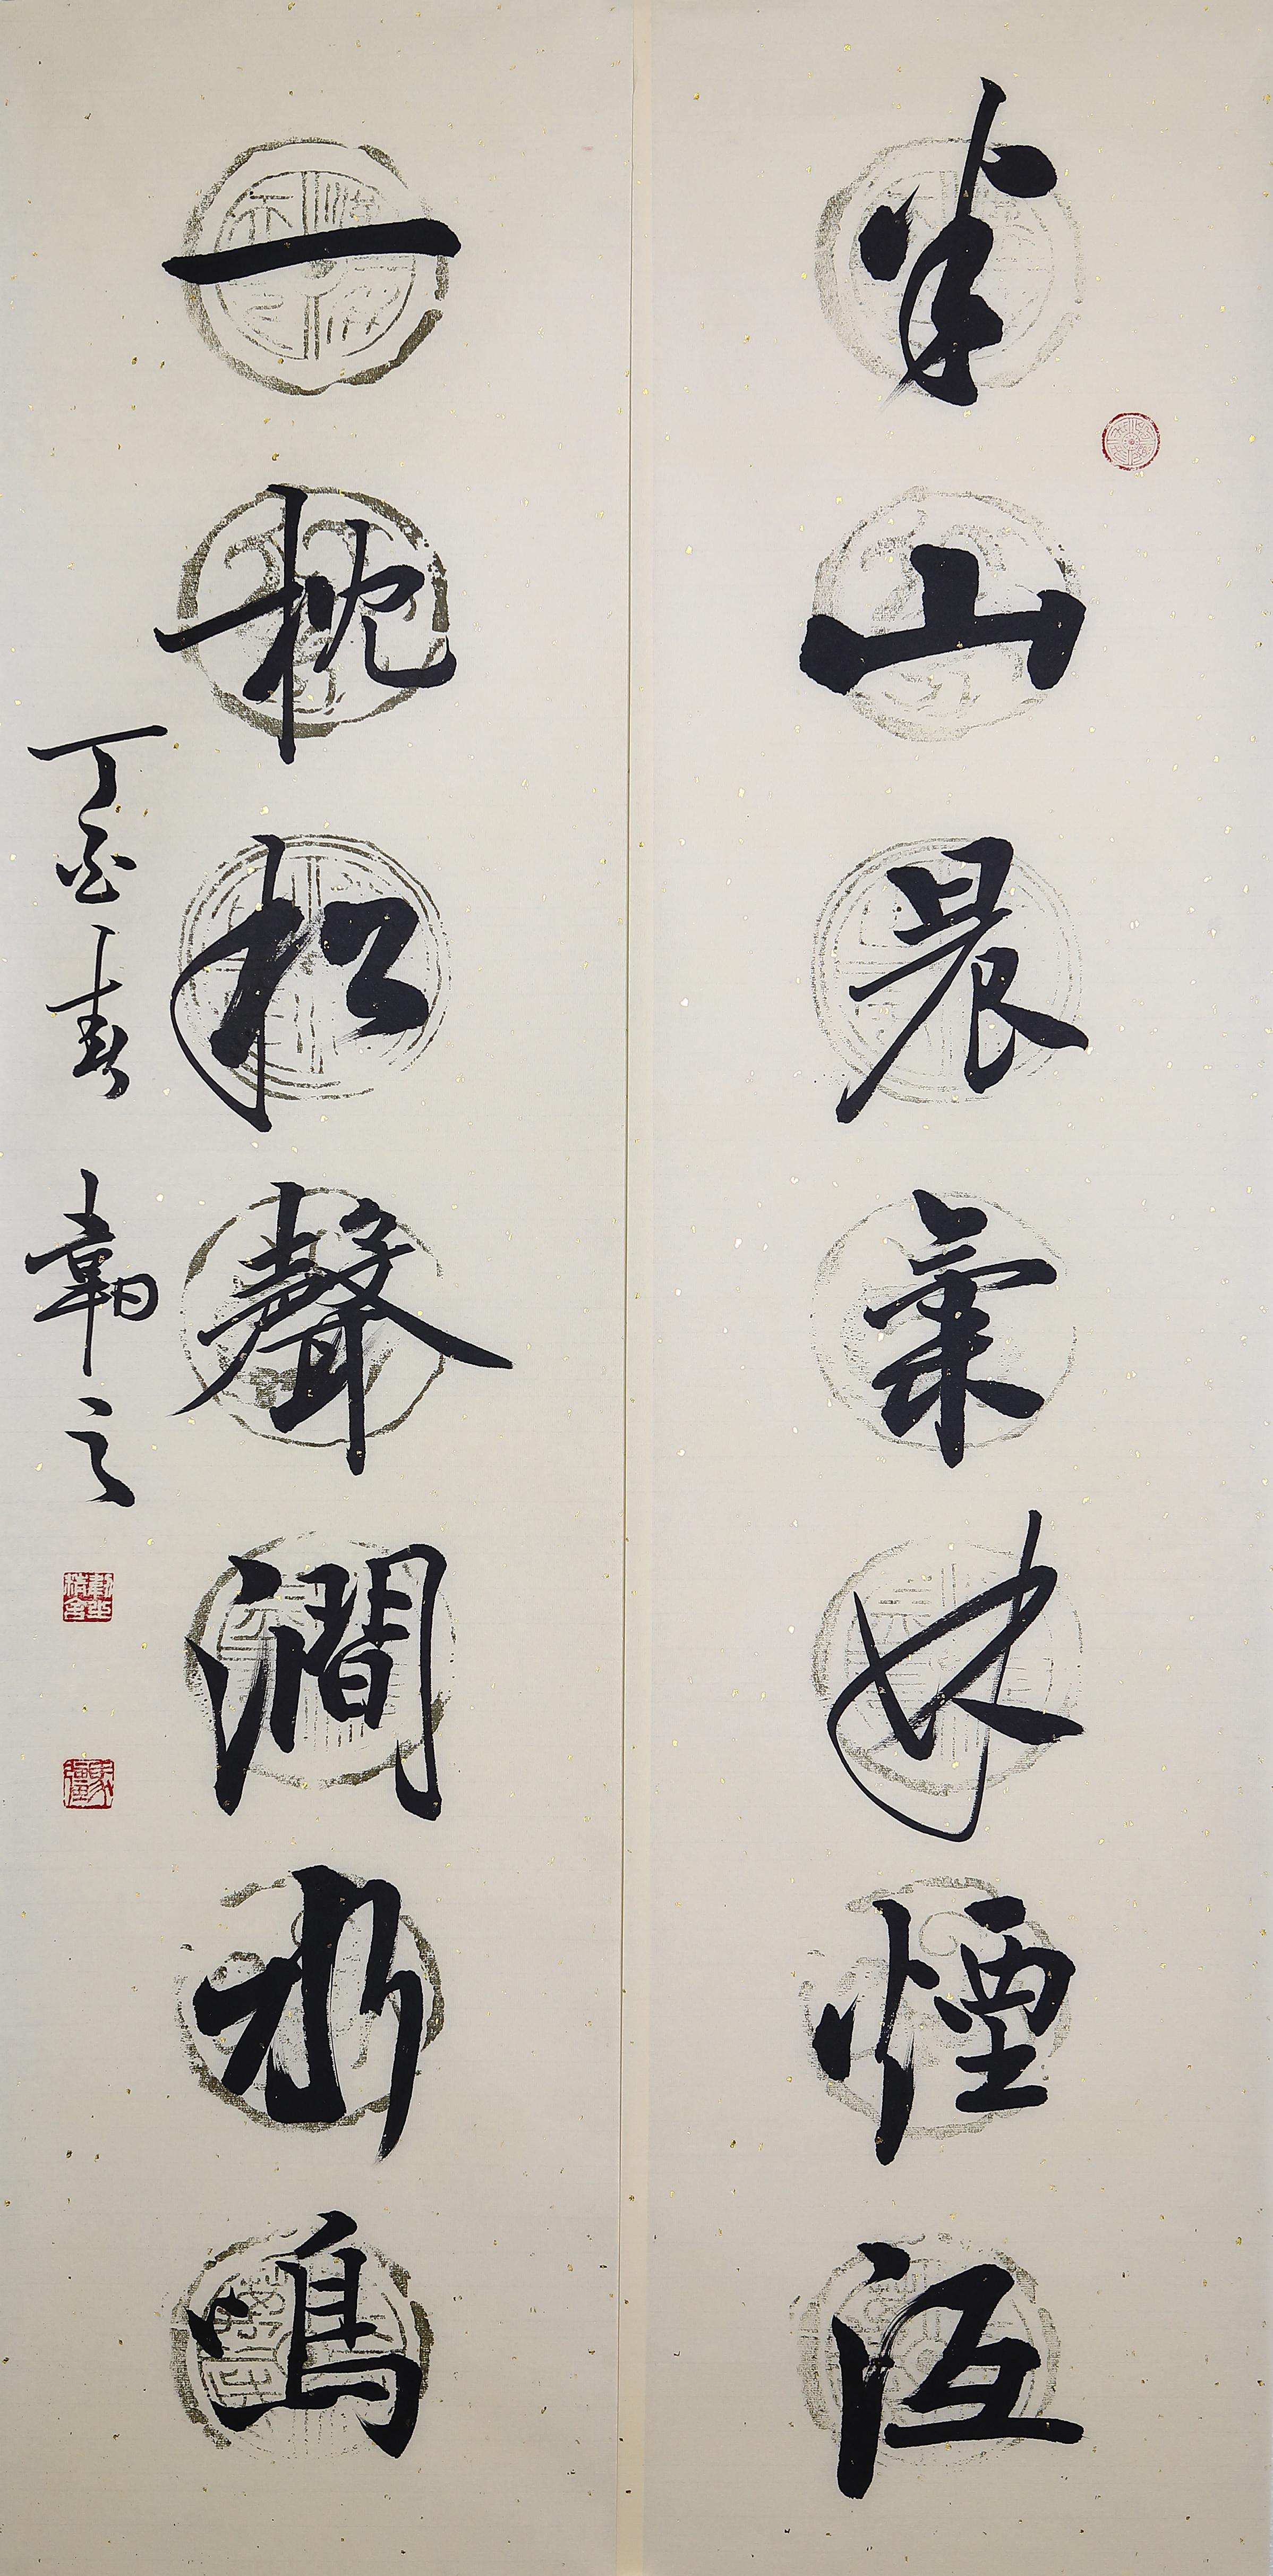 半山晨氣林煙沍
一枕松聲澗水鳴
丁酉春 韌之